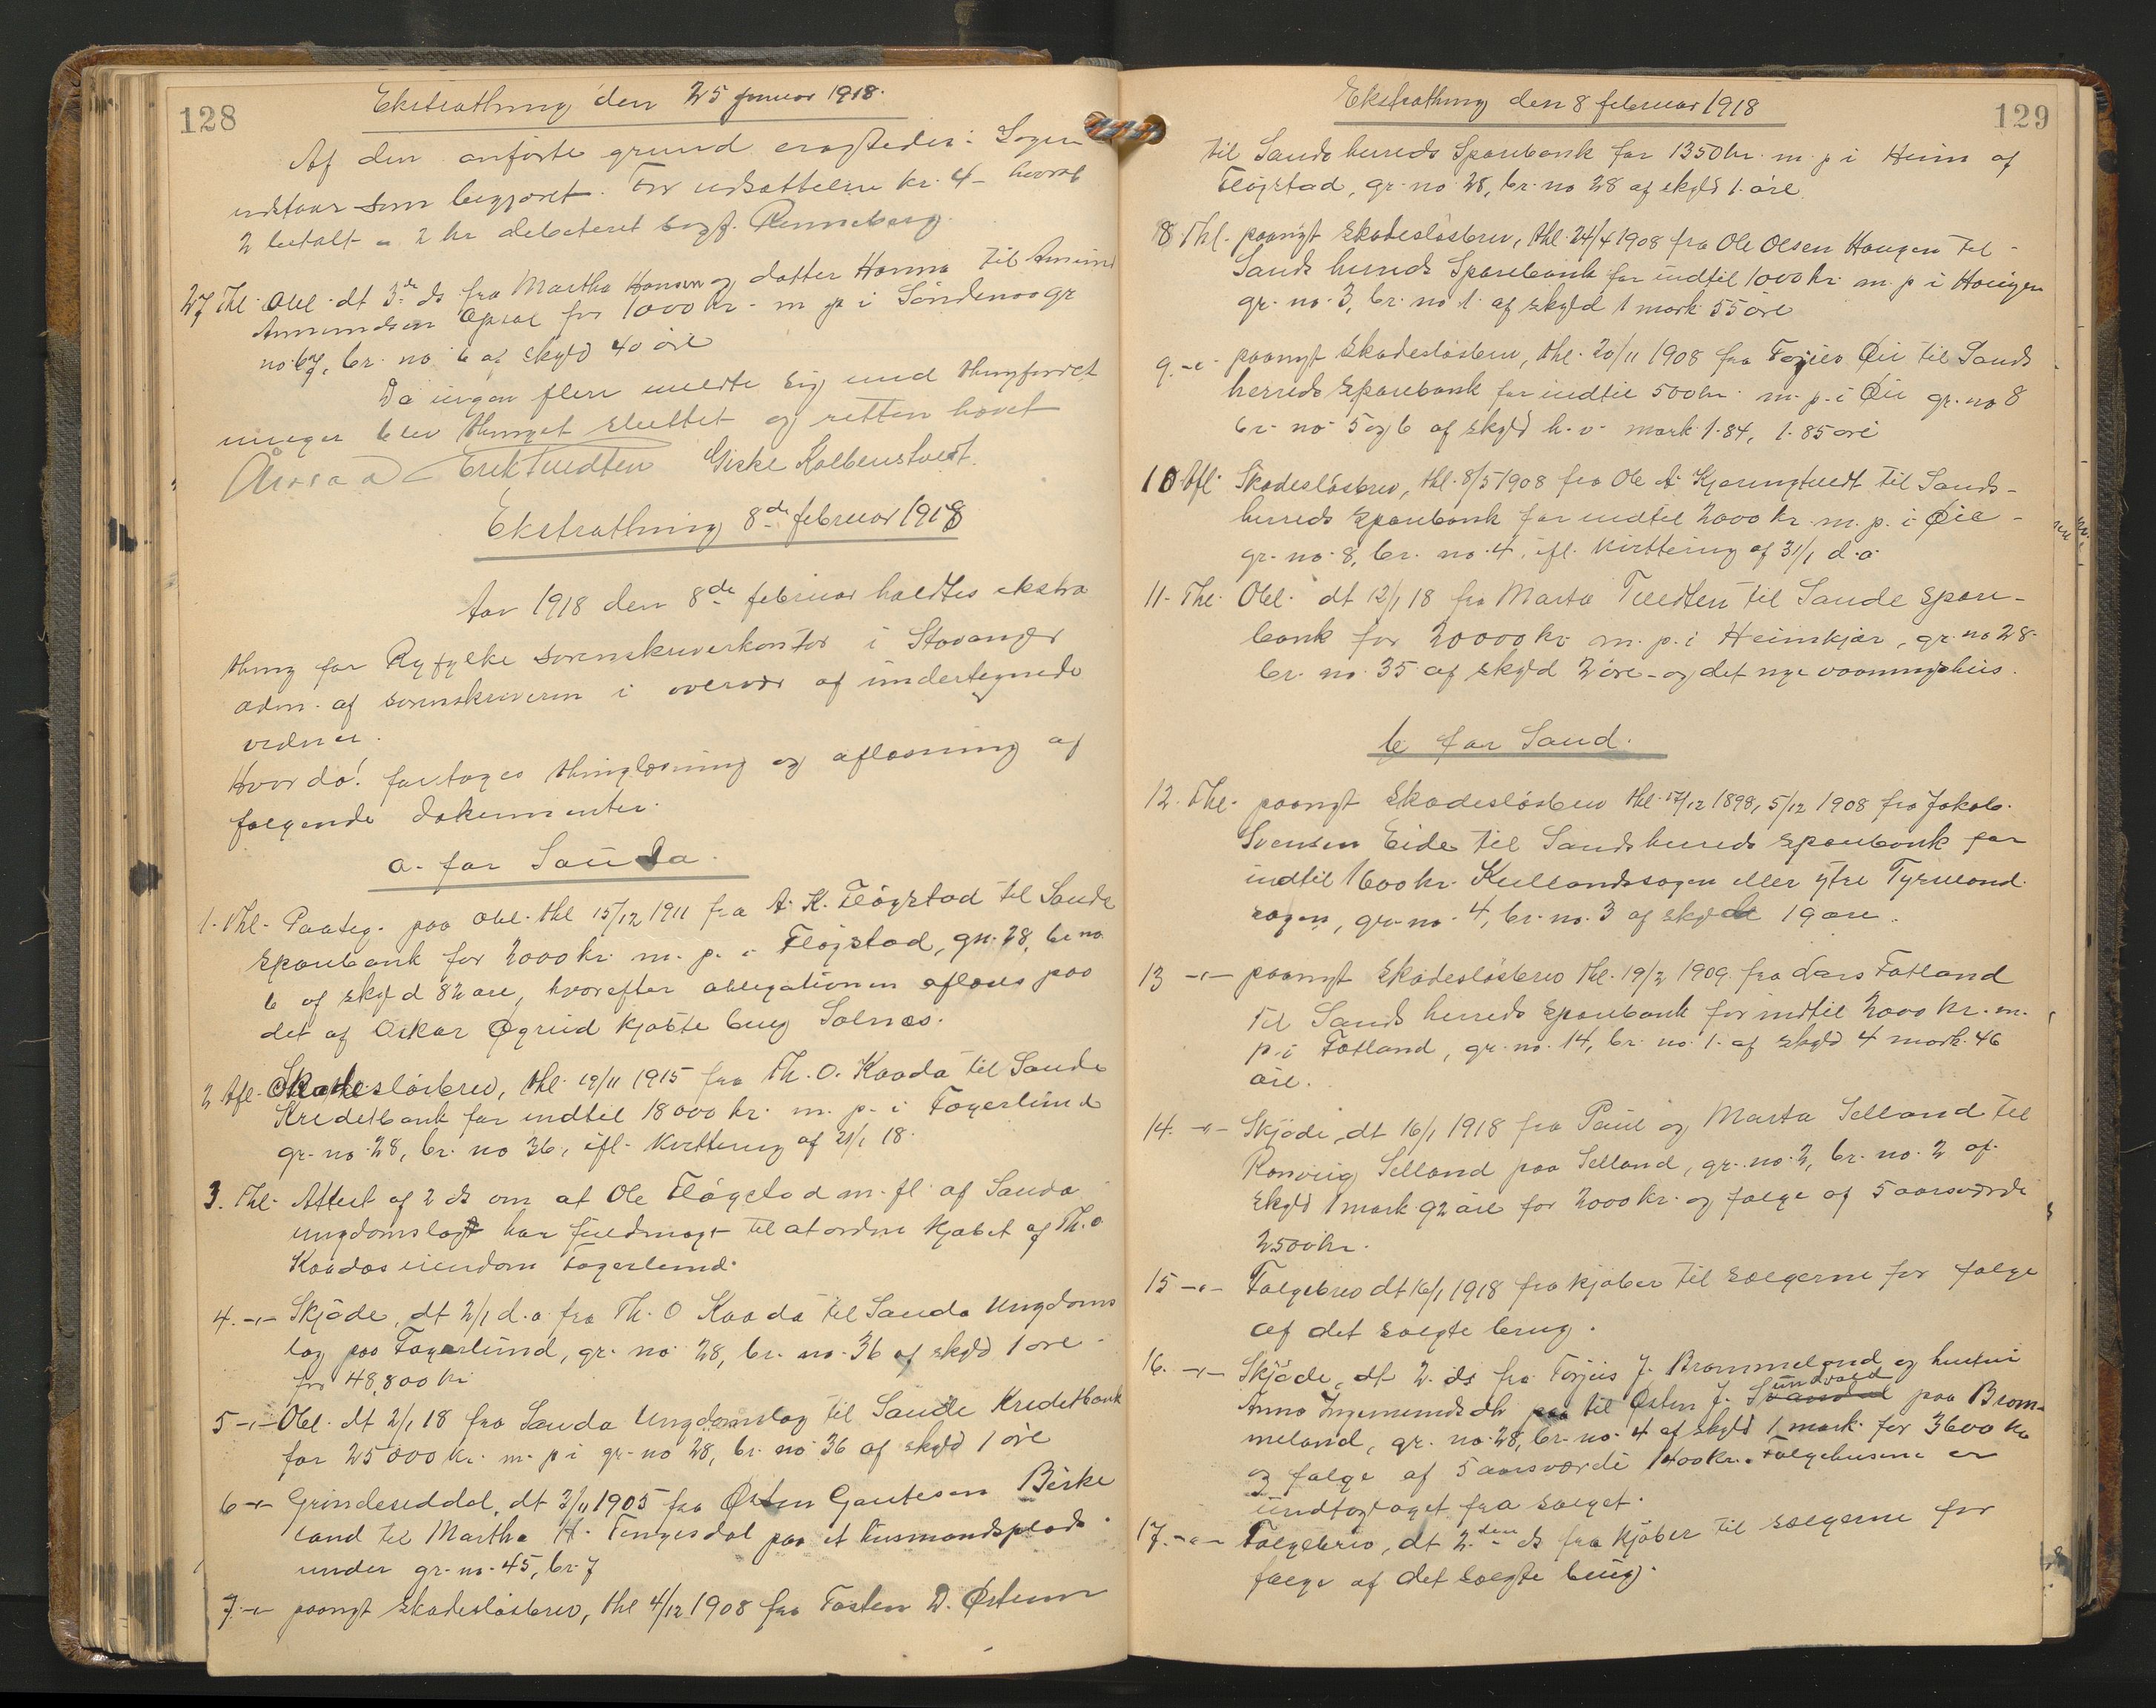 128
Ekstrathing den 25 januar 1918.
Af den anførte grund eragtedes: Sagen
udstaar som begjæret. For udsættelsen kr. 4 - hvoraf
2 betalt - 2 kr debeteret sagf. Renneberg.
27 Thl. Obl. dt 3de ds. fra Martha Hansen og datter Hanna til Amund
Amundsen Opsal for 1000 kr. m. p. i Søndenaa gr
no. 67, br. no 6 af skyld 40 øre
Da ingen flere meldte sig med thingforret
ninger blev thinget sluttet og retten hævet
Aarstad Erik Tvedten Giske Kolbenstvedt.
Ekstrathing 8de februar 1918
Aar 1918 den 8de februar holdtes ekstra
thing for Ryfylke sorenskriverkontor i Stavanger
adm. af sorenskriveren i overvær af undertegnede
vidner.
Hvorda! foretoges thinglæsning og aflæsning af
følgende dokumenter.
a. for Sauda.
1. Thl. Paateg. paa obl. thl 15/12 1911 fra A. K. Fløgstad til Saude
sparebank for 2000 kr. m. p. i Fløgstad, gn. 28, br no.
6 af skyld 82 øre, hvorefter obligationen aflæses paa
det af Oskar Øgreid kjøbte brug Solnæs.
2 Afl. Skadesløsbrev, thl. 19/11 1915 fra Th. O. Kaada til Saude
Kreditbank for indtil 18000 kr. m. p. i Fagerlund
gr. no. 28, br. no 36, ifl. kvittering af 21/1 18.
3. Thl. Attest af 2 ds om at Ole Fløgstad m. fl. af Sauda
ungdomslag har fuldmagt til at ordne kjøbet af Th. O
Kaadas eiendom Fagerlund.
4. -"- Skjøde, dt 2/1 d.a. fra Th. O Kaada til Sauda Ungdoms
lag paa Fagerlund, gr. no 28, br. no. 36 af skyld 1 øre
for 48,800 kr
5 -"- Obl. dt 2/1 18 fra Sauda Ungdomslag til Saude Kreditbank
for 25000 kr. m. p i gr. no 28, br. no 36 af skyld 1 øre
6 -"- Grundseddel, dt 3/11 1905 fra Østen Gautesen Birke
land til Martha H. Tengesdal paa et husmandsplads
under gr. no. 45, br. 7
7 -"- paangt skadesløsbrev, thl 4/12 1908 fra Tosten D. Østenn
Ekstrathing den 8 februar 1918
129
til Sands herreds Sparebank for 1350 kr. m. p i Heim af
Fløgstad, gr. no 28, br. no 28 af skyld 1 øre.
8. Thl. paangt skadesløsbrev, thl. 24/4 1908 fra Ole Olsen Haugen til
Sands herreds Sparebank for indtil 1000 kr. m. p i Haugen
gr. no. 3, br. no 1. af skyld 1 mark 55 øre
9. -"- paangt skadesløsbrev, thl. 20/11 1908 fra Torjus Øie til Sands
herreds sparebank for indtil 500 kr. m. p. i Øie gr. no 8
br. no 5 og 6 af skyld h. v. mark 1.84, 1.85 øre
10 Afl. Skadesløsbrev, thl. 8/5 1908 fra Ole A. Kjæringtvedt til Sands
herreds sparebank for indtil 2000 kr. m. p. i Øie
gr. no. 8, br. no. 4, ifl. kvittering af 31/1 d.a.
11. Thl. Obl. dt 12/1 18 fra Marta Tvedten til Saude spare-
bank for 20000 kr m. p. i Heimkjær, gr. no 28.
br. no. 35 af skyld 2 øre - og det nye vaaningshus.
b for Sand.
12. Thl. paangt skadesløsbrev thl. 17/12 1898, 5/12 1908 fra Jakob
Svensen Eide til Sands herreds sparebank for
indtil 1600 kr. Kullandsagen eller ytre Tyrmonds
sagen, gr. no. 4, br. no. 3 af skyld 19 øre.
13 -"- paangt skadesløsbrev thl. 19/2 1909 fra Lars Fatland
til Sands herreds sparebank for indtil 2000 kr. m.
p. i Fatland, gr. no. 14, br. no. 1. af skyld 4 mark 46
øre.
14. -"- Skjøde, dt 16/1 1918 fra Paul og Marta Selland til
Ranveig Selland paa Selland, gr. no. 2, br. no. 2 af
skyld 1 mark 92 øre for 2000 kr. og følge af 5 aarsværdi
2500 kr.
15 -"- Følgebrev dt 16/1 1918 fra kjøber til sælgerne for følge
af det solgte brug.
16. -"- Skjøde, dt 2. ds fra Torjus J. Brommeland og hustru
Anna Ingemundsdtr paa til Østen J. Sundvold paa Brom-
meland, gr. no. 28, br. no. 4 af skyld 1 mark for 3600 kr
og følge af 5 aarsværdi 1400 kr. Følgehusene er
undtaget fra salget.
17. -"- Følgebrev, dt 2den ds fra kjøber til sælgerne for
følge af det solgte brug.